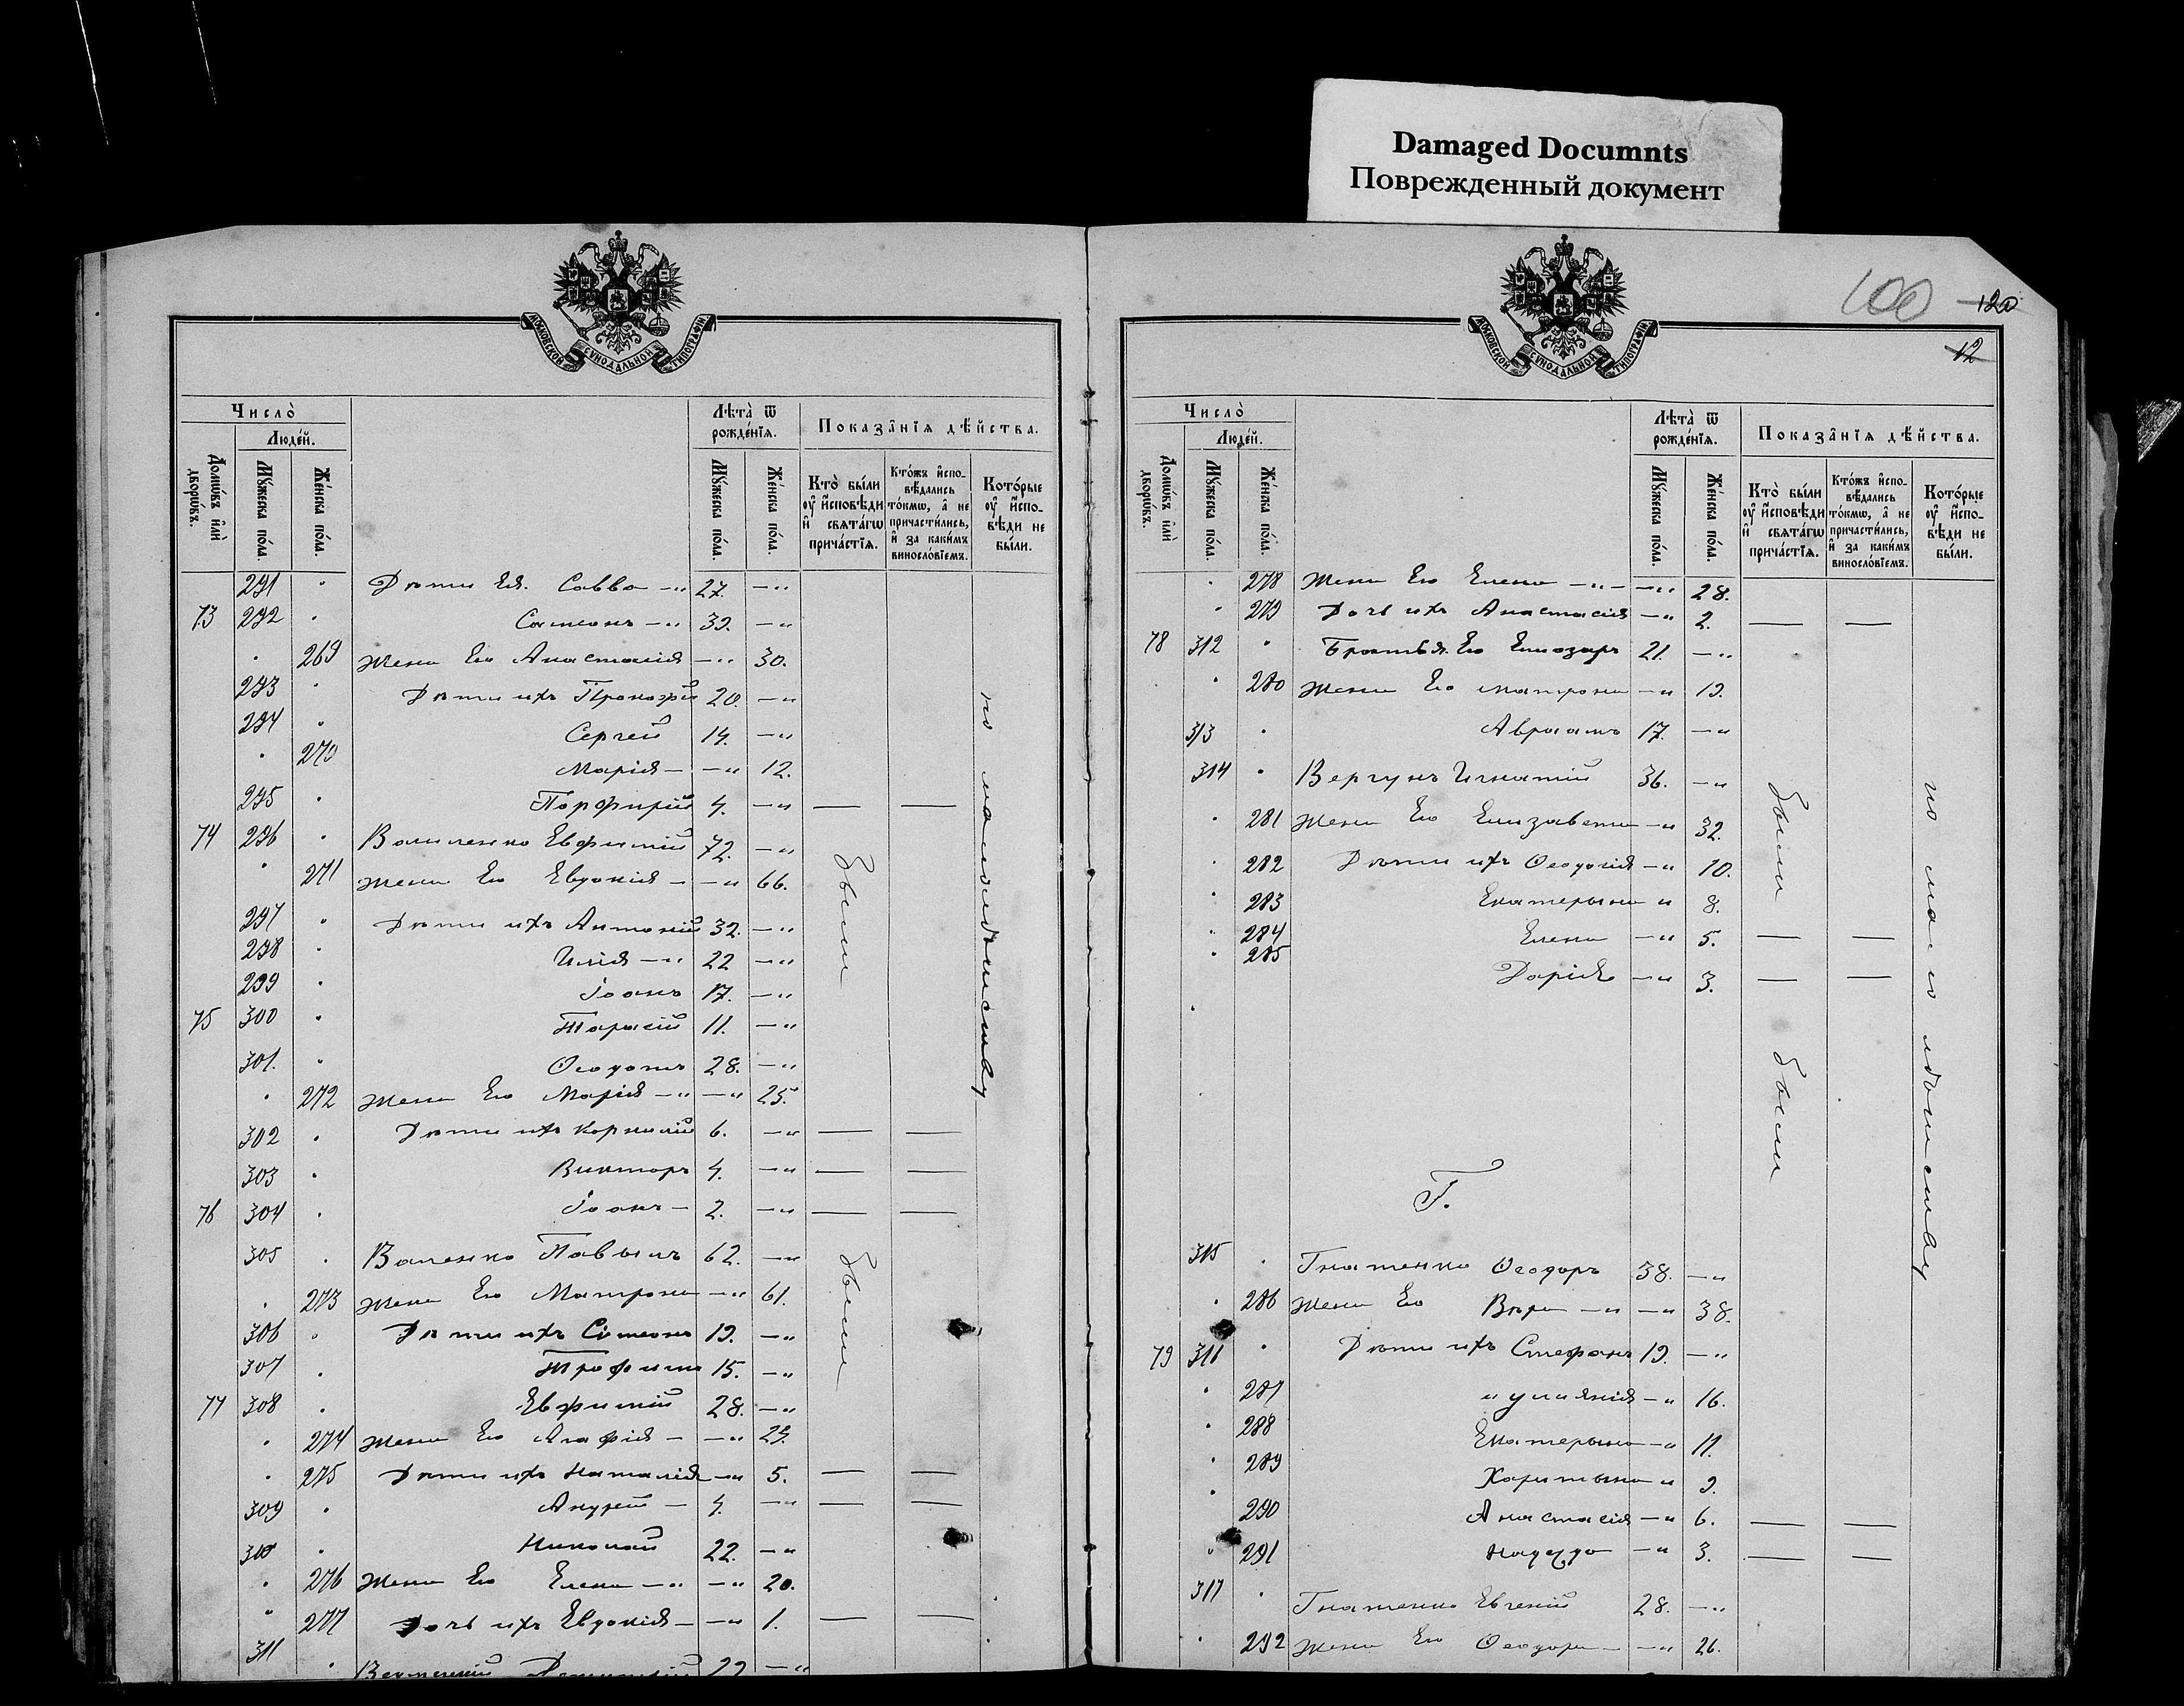 Damaged Documnts
Поврежденный документ
МОСКОВСКОЙ СѴНОДАЛЬНОЙ ТИПОГРАФІИ
Число̀
Людéй.
Домѡ́въ и҆лѝ дворѡ́въ.
Мꙋ́жеска по́ла.
Же́нска по́ла.
Лѣ́та ѿ рожде́нїѧ.
Мꙋ́жеска по́ла.
Же́нска по́ла.
Показа̑нїѧ дѣ́йства.
Кто̀ бы́ли ᲂу҆ и҆́сповѣди и҆ свѧта́гѡ прича́стїѧ.
Кто́жъ и҆сповѣ́дались то́кмѡ, а҆ не причасти́лись, и҆ за каки́мъ виносло́вїемъ.
Кото́рые ᲂу҆ и҆́сповѣди не бы́ли.
291 " Дѣти Ея Савва —" 27. —"
73 292 " Самсонъ —" 39. —"
" 269 Жена Его Анастасія —" 30.
293 " Дѣти ихъ Прокофій 20. —"
294 " Сергей 14. —"
" 270 Марія — —" 12.
295 " Порфирій 4. —" — —
74 296 " Евфимій 72. —"
" 271 Жена Его Евдокія — —" 66.
297 " Дѣти ихъ Антоній 32. —"
298 " Илія —" 22 —"
299 " Іоанъ 17. —"
75 300 " Тарасій 11. —"
301. " Ѳеодотъ 28. —"
" 272 Жена Его Марія —" —" 25.
302 " Дѣти ихъ Корнилій 6. —" — —
303 " Викторъ 4. —" — —
76 304 " Іоанъ — 2. —" — —
305 " Валенко 62. —"
" 273 Жена Его Матрона —" 61.
306 " Дѣти ихъ Симеонъ 19. —"
307 " Трофимъ 15. —"
77 308 " Евфимій 28. —"
" 274 Жена Его Агафія — —" 29.
" 275 Дѣти ихъ Наталія —" 5. — —
309 " Андрей — 4. —" — —
310 " Николай 22. —"
" 276 Жена Его Елена —" —" 20.
" 277 Дочь ихъ Евдокія — —" 1. — —
311 "
были
были
по малолѣтству
100
120
12
МОСКОВСКОЙ СѴНОДАЛЬНОЙ ТИПОГРАФІИ
Число̀
Людéй.
Домѡ́въ и҆лѝ дворѡ́въ.
Мꙋ́жеска по́ла.
Же́нска по́ла.
Лѣ́та ѿ рожде́нїѧ.
Мꙋ́жеска по́ла.
Же́нска по́ла.
Показа̑нїѧ дѣ́йства.
Кто̀ бы́ли ᲂу҆ и҆́сповѣди и҆ свѧта́гѡ прича́стїѧ.
Кто́жъ и҆сповѣ́дались то́кмѡ, а҆ не причасти́лись, и҆ за каки́мъ виносло́вїемъ.
Кото́рые ᲂу҆ и҆́сповѣди не бы́ли.
" 278 Жена Его Елена —"— —" 28.
" 279 Дочь ихъ Анастасія —" 2. — —
78 312 " Братья Его Елиазаръ 21. —"
" 280 Жена Его Матрона —" 19.
313 " Авраамъ 17. —"
314 " Вергунъ Игнатій 36. —"
" 281 Жена Его Елизавета —" 32.
" 282 Дѣти ихъ Ѳеодосія —" 10.
" 283 Екатерына " 8.
" 284 Елена —" 5. — —
" 285 Дарія —" 3. — —
Г.
315 " Гнатенко Ѳеодоръ 38. —"
" 286 Жена Его Вѣра —" —" 38.
79 316 " Дѣти ихъ Стефанъ 19. —"
" 287 иулиянія —" 16.
" 288 Екатерына —" 11.
" 289 Харитына " 9.
" 290 Анастасія —" 6. — —
" 291 Надежда —" 3. — —
317 " Гнатенко Евгеній 28. —"
" 292 Жена Его Ѳеодора — —" 26.
были
были
по малолѣтству